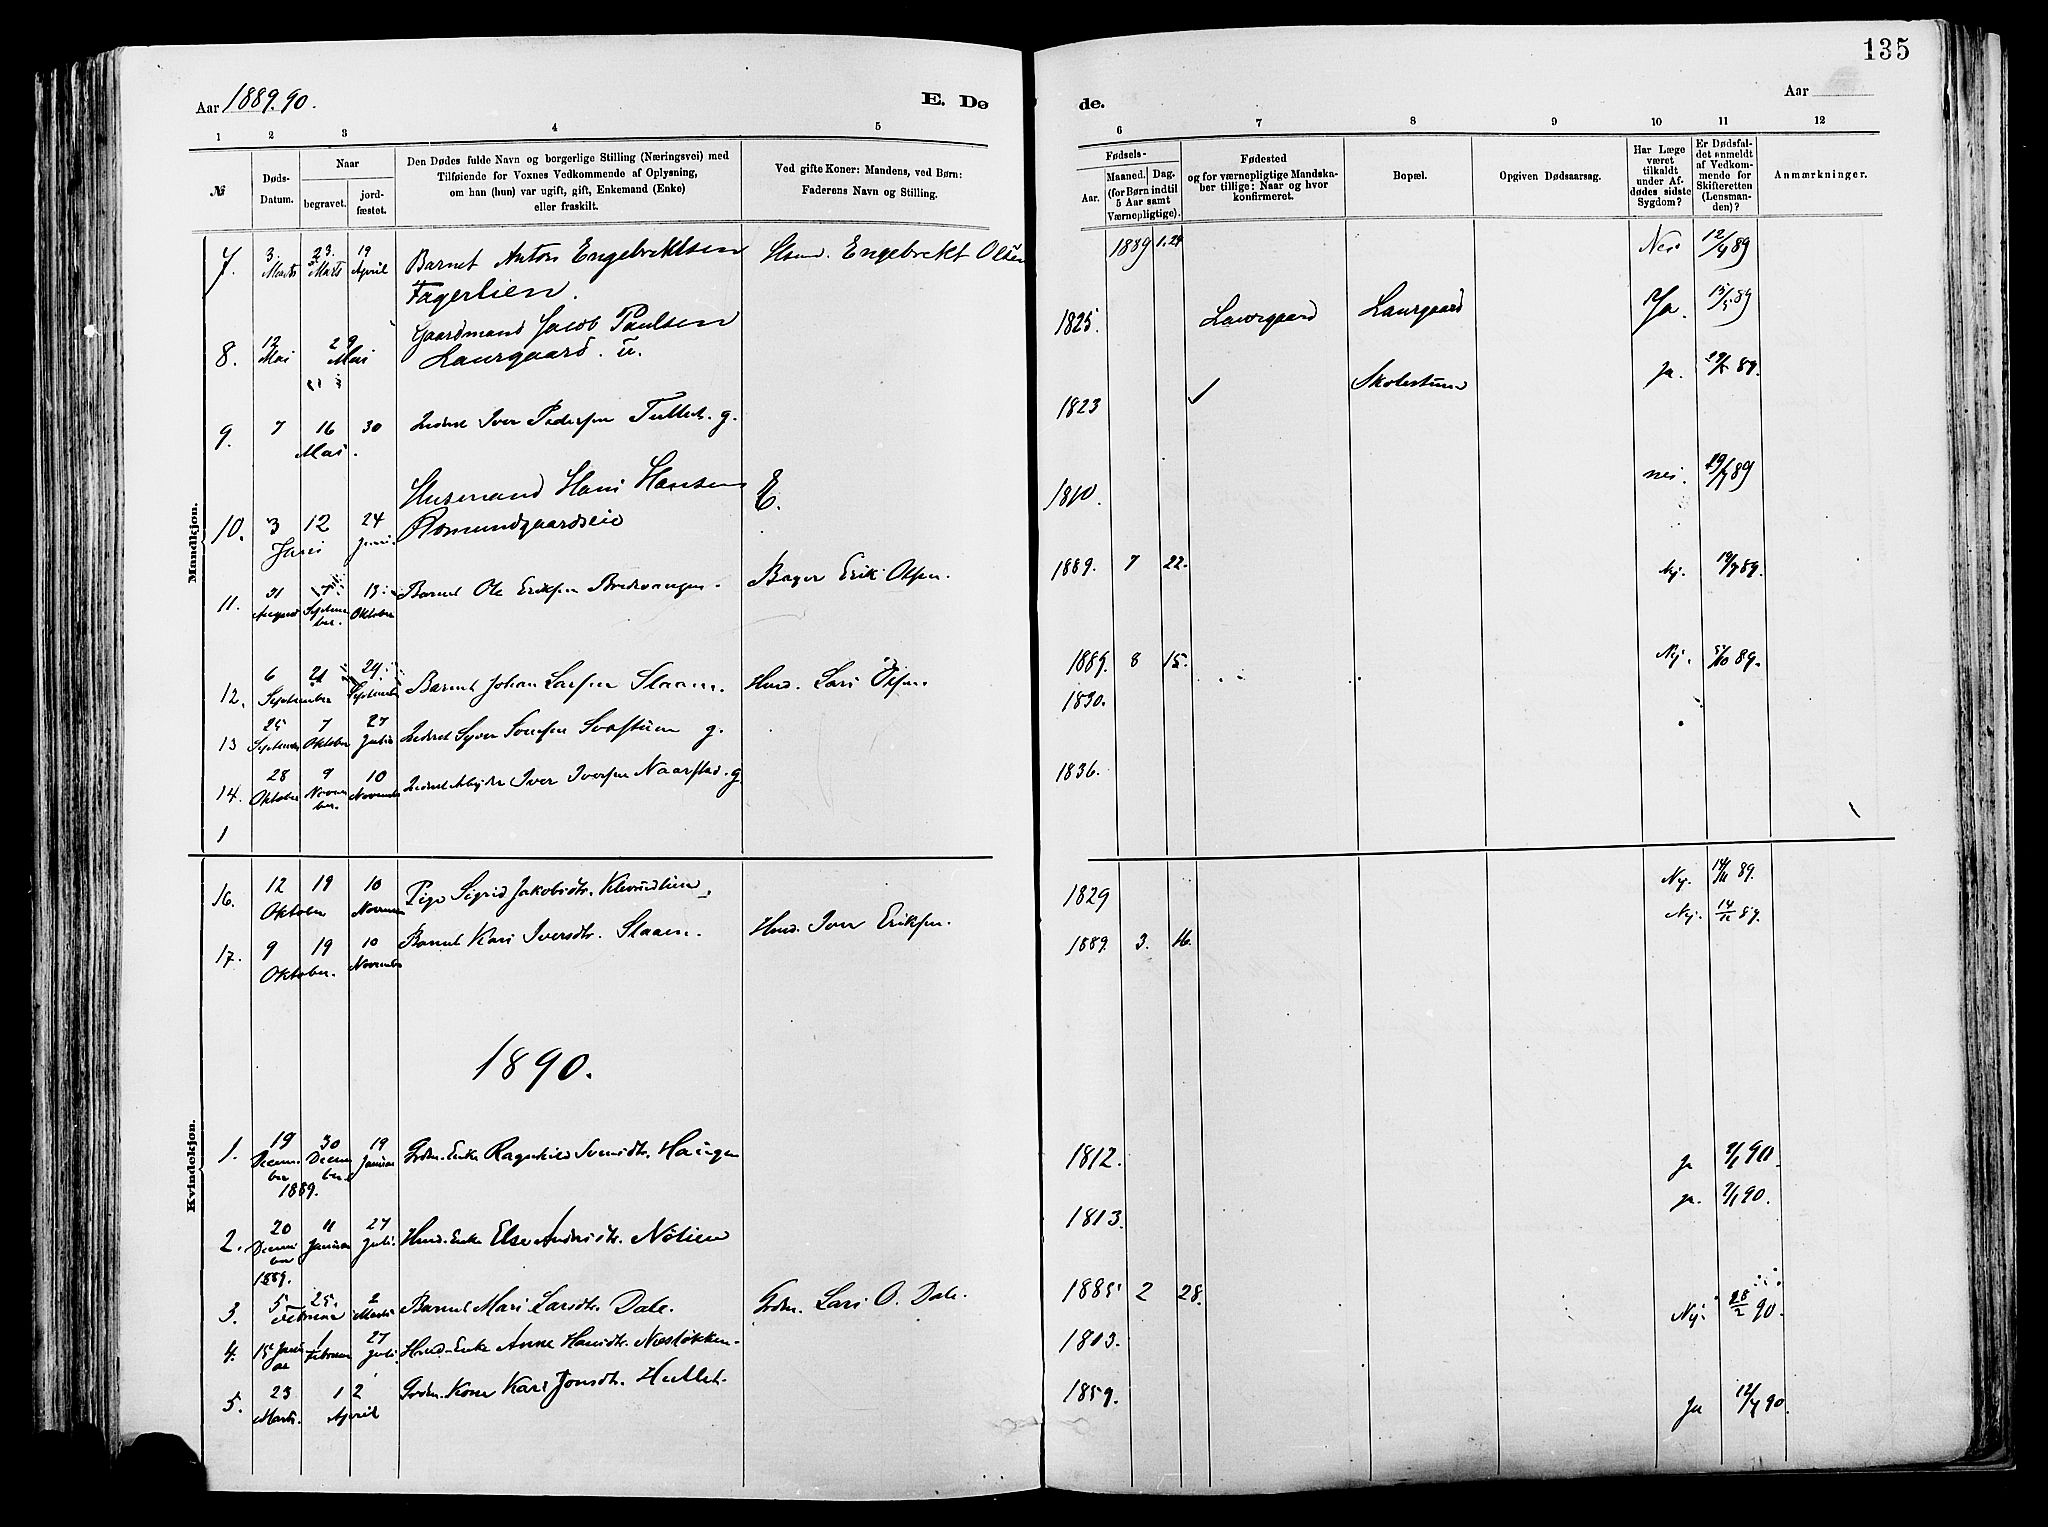 135
Aar 1889.90.
E. Dø
de.
Aar
1 2 3 4 5 6 7 8 9 10 11 12
№
Døds-
Datum.
Naar
begravet.
jord-
fæstet.
Den Dødes fulde Navn og borgerlige Stilling (Næringsvei) med
Tilføiende for Voxnes Vedkommende af Oplysning,
om han (hun) var ugift, gift, Enkemand (Enke)
eller fraskilt.
Ved gifte Koner: Mandens, ved Børn:
Faderens Navn og Stilling.
Fødsels-
Aar.
Maaned. Dag.
(for Børn indtil
5 Aar samt
Værnepligtige).
Fødested
og for værnepligtige Mandska-
ber tillige: Naar og hvor
konfirmeret.
Bopæl.
Opgiven Dødsaarsag.
Har Læge
været
tilkaldt
under Af-
dødes sidste
Sygdom?
Er Dødsfal-
det anmeldt
af Vedkom-
mende for
Skifteretten
(Lensman-
den)?
Anmærkninger.
Mandkjøn.
7. 3. Marts 23. Marts 19 April Barnet Anton Engebrektsen Engebrekt Olsen 1889 1.24 Nei 12/4 89
Fagerlien.
8. 12 Mai 29 Mai Gaardmand Jacob Paulsen 1825. Laurgaard Laurgaard Ja. 15/5 89
Laurgaard. u.
9. 7 16 30 Mai. Iver Pedersen g. 1823 Ja. 89.
10. 3 12 Juni 24 Juni. Husmand Hans Hansen E. 1810. nei. 89
Romundgaardseie
11. 31 August 7 Septem-
ber. 13 Oktober Barnet Ole Eriksen Bredvangen. Bager Erik Olsen. 1889. 7 22. Nej. 89.
12. 6 21 September 29. September Barnet Johan Larsen Slaaen. Husd. Lars Olsen. 1889. 8 15. Nej. 5/10 89.
13 25 September 7 Oktober 27 Julie Inderst Syver g. 1830.
14. 28 Oktober 9 Novem-
ber. 10 November Iver Iversen Naarstad. g 1836.
1
Kvindekjøn.
16. 12 19 Oktober 10 November Pige Sigrid Jakobsdtr. 1829 Nej. 14/11 89.
17. 9 19 Oktober. 10 November Barnet Kari Iversdtr. Slaaen. Husd. Iver Eriksen. 1889. 3. 16. Nej. 14/11 89.
1890.
1. 19 Decem-
ber 1889. 30 Decem-
ber. 19 Januar Grdm. Enke Ragnhild Haugen 1812. Ja 90.
2. 20 Decem-
ber 1889. 11 Januar 27 Juli. Husd. Enke Else Andersdtr. 1813. Ja. 90.
3. 5 25. Februar 2 Marts Barnet Mari Larsdtr. Dale. Grdm. Lars O. Dale. 1885 2 28. Nej. 28/2 90.
4. 15 Janu-
ar 1 Februar 27 Juli. Husd. Enke Anne Hansdtr. 1803.
5. 23 Marts. 12 April Grdm. Kone Kari Jonsdtr. 1859. Ja 12/4 90.